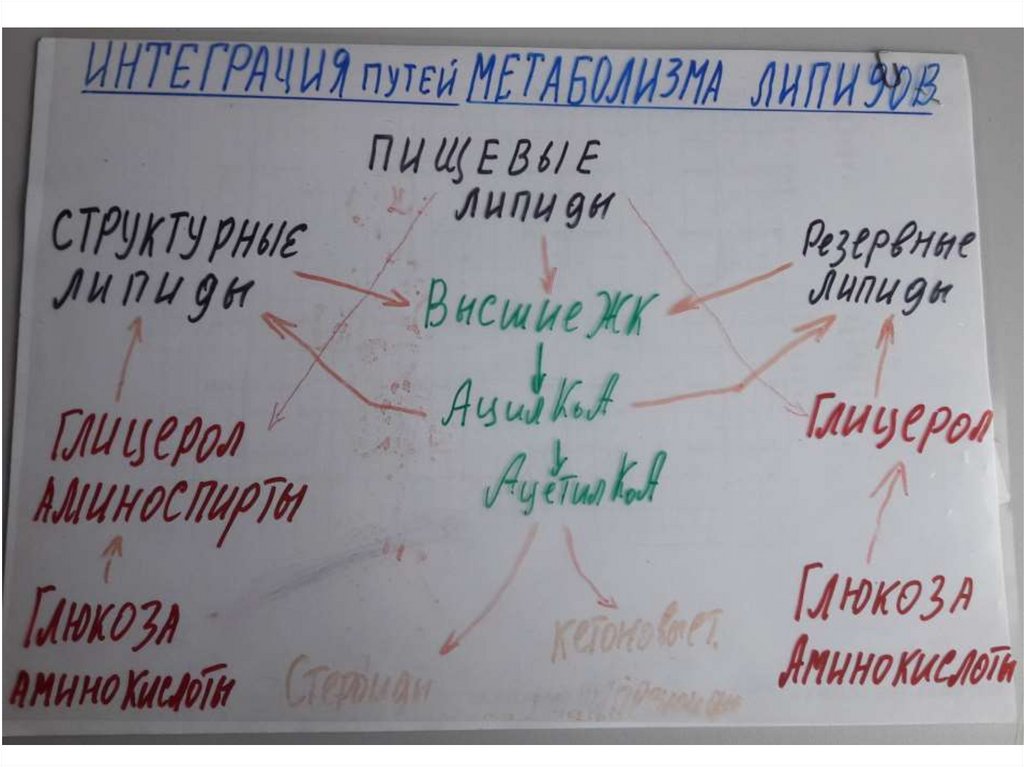 ИНТЕГРАЦИЯ ПУТЕЙ МЕТАБОЛИЗМА ЛИПИДОВ
ПИЩЕВЫЕ
ЛИПИДЫ
СТРУКТУРНЫЕ
ЛИПИДЫ
Резервные
ЛИПИДЫ
Высшие ЖК
АцилКоА
Глицерол
Аминоспирты
Глицерол
АцетилКоА
Глюкоза
Аминокислоты
Глюкоза
Аминокислоты
Кетоновые т.
Стероиды